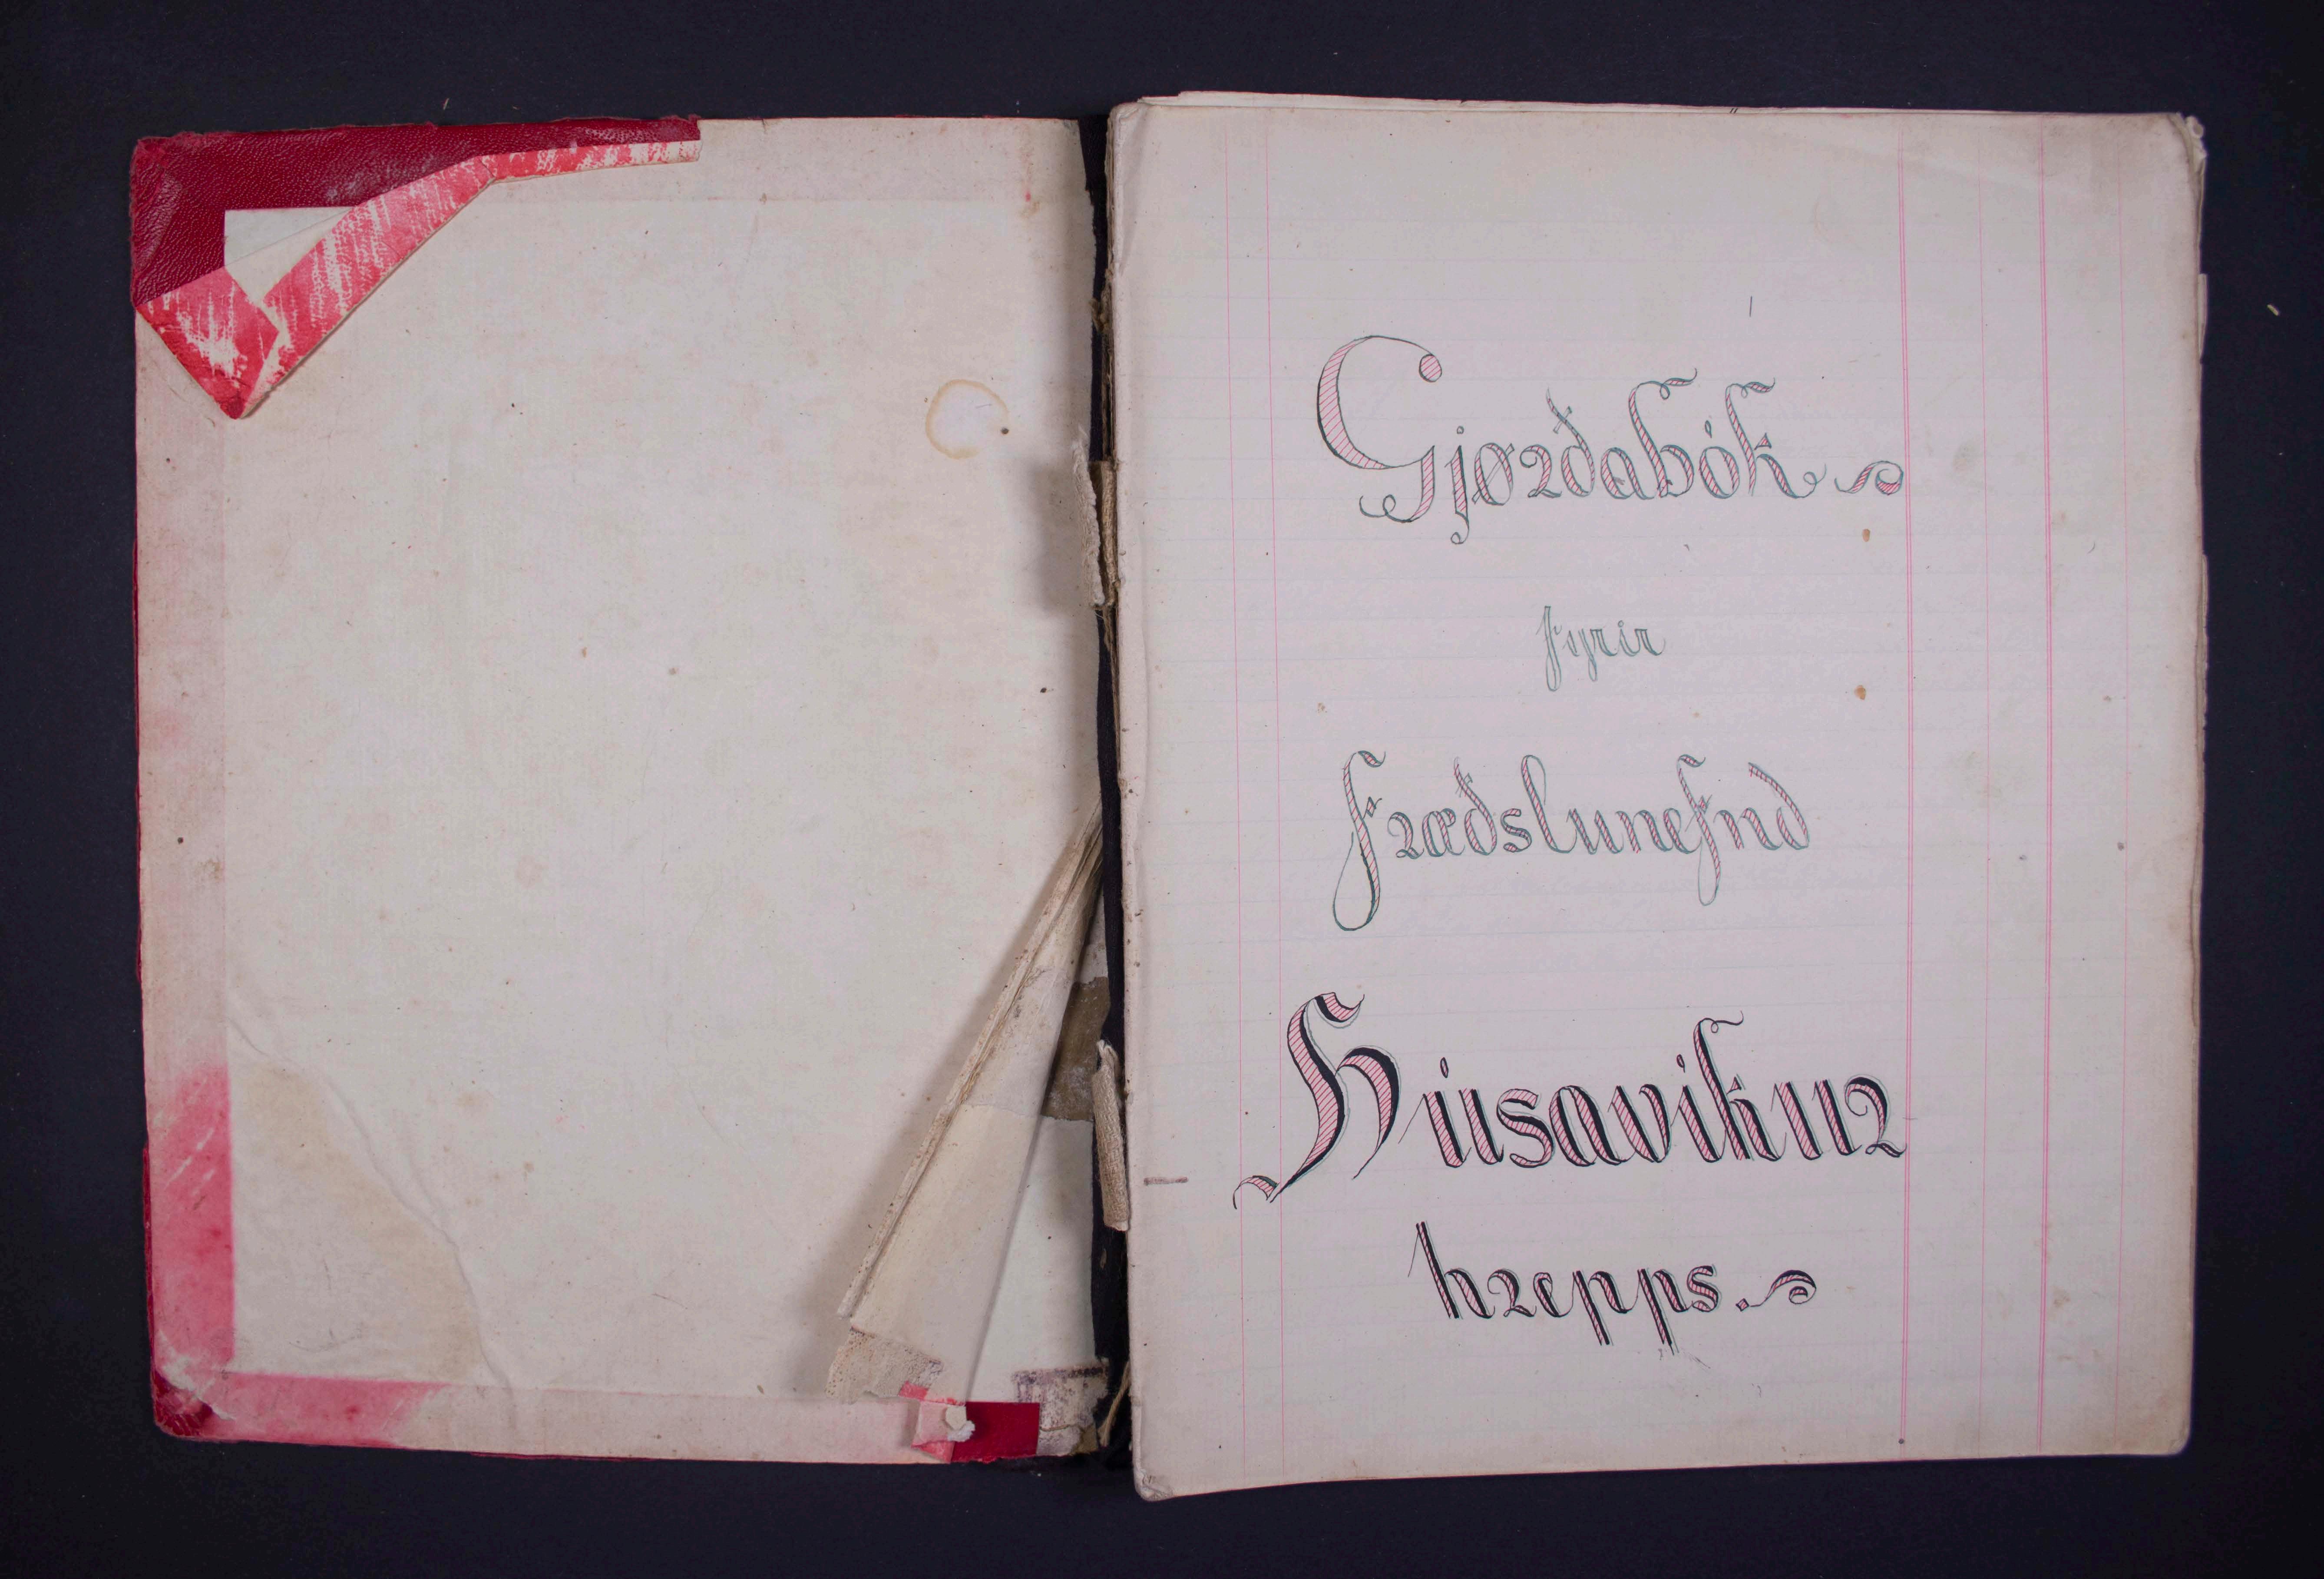 Gjørðabók
fyrir
Fræðslunefnd
Húsavíkur
hrepps.